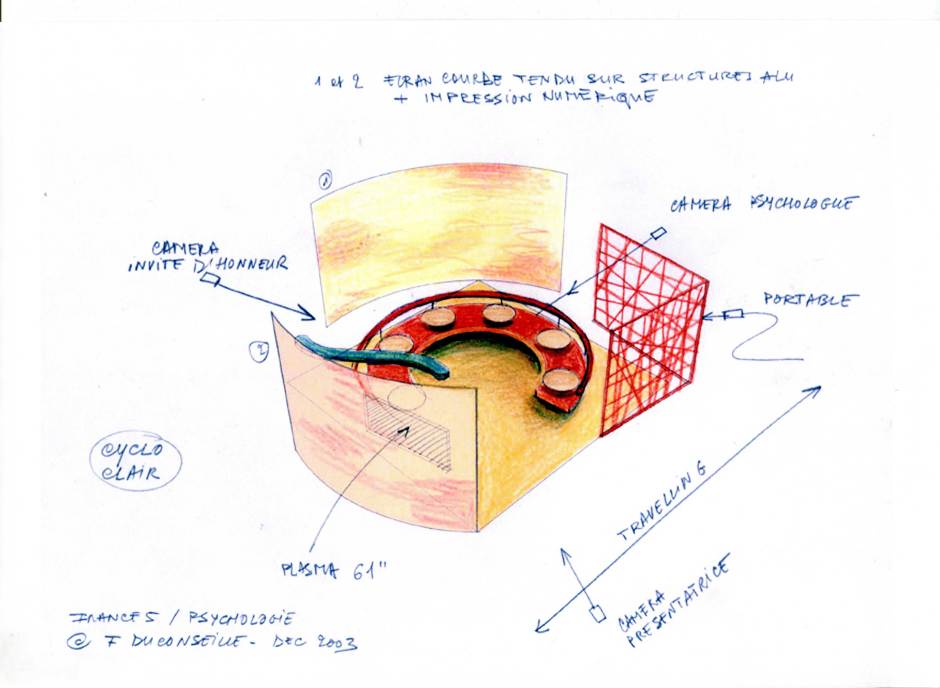 1 et 2 ECRAN COURBE TENDU SUR STRUCTURES ALU
+ IMPRESSION NUMÉRIQUE
1
CAMERA PSYCHOLOGUE
CAMERA
INVITE D'HONNEUR
PORTABLE
2
CYCLO
CLAIR
TRAVELLING
PLASMA 61"
CAMERA
PRESENTATRICE
FRANCE 5 / PSYCHOLOGIE
© F DUCONSEILLE - DEC 2003